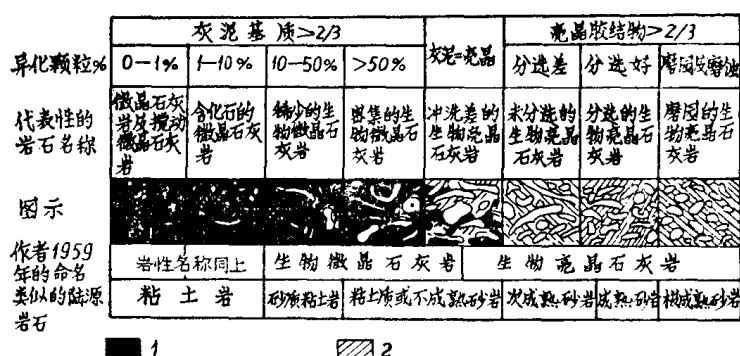 灰泥基质>2/3
灰泥=亮晶
亮晶胶结物>2/3
异化颗粒%
0—1%
1—10%
10—50%
>50%
分选差
分选好
磨圆及磨蚀
代表性的
岩石名称
微晶石灰
岩及搅动
微晶石灰
岩
含化石的
微晶石灰
岩
稀少的生
物微晶石
灰岩
密集的生
物微晶石
灰岩
冲洗差的
生物亮晶
石灰岩
未分选的
生物亮晶
石灰岩
分选的生
物亮晶石
灰岩
磨圆的生
物亮晶石
灰岩
图示
作者1959
年的命名
岩性名称同上
生物微晶石灰岩
生物亮晶石灰岩
类似的陆源
岩石
粘土岩
砂质粘土岩
粘土质或不成熟砂岩
次成熟砂岩
成熟砂岩
极成熟砂岩
1
2